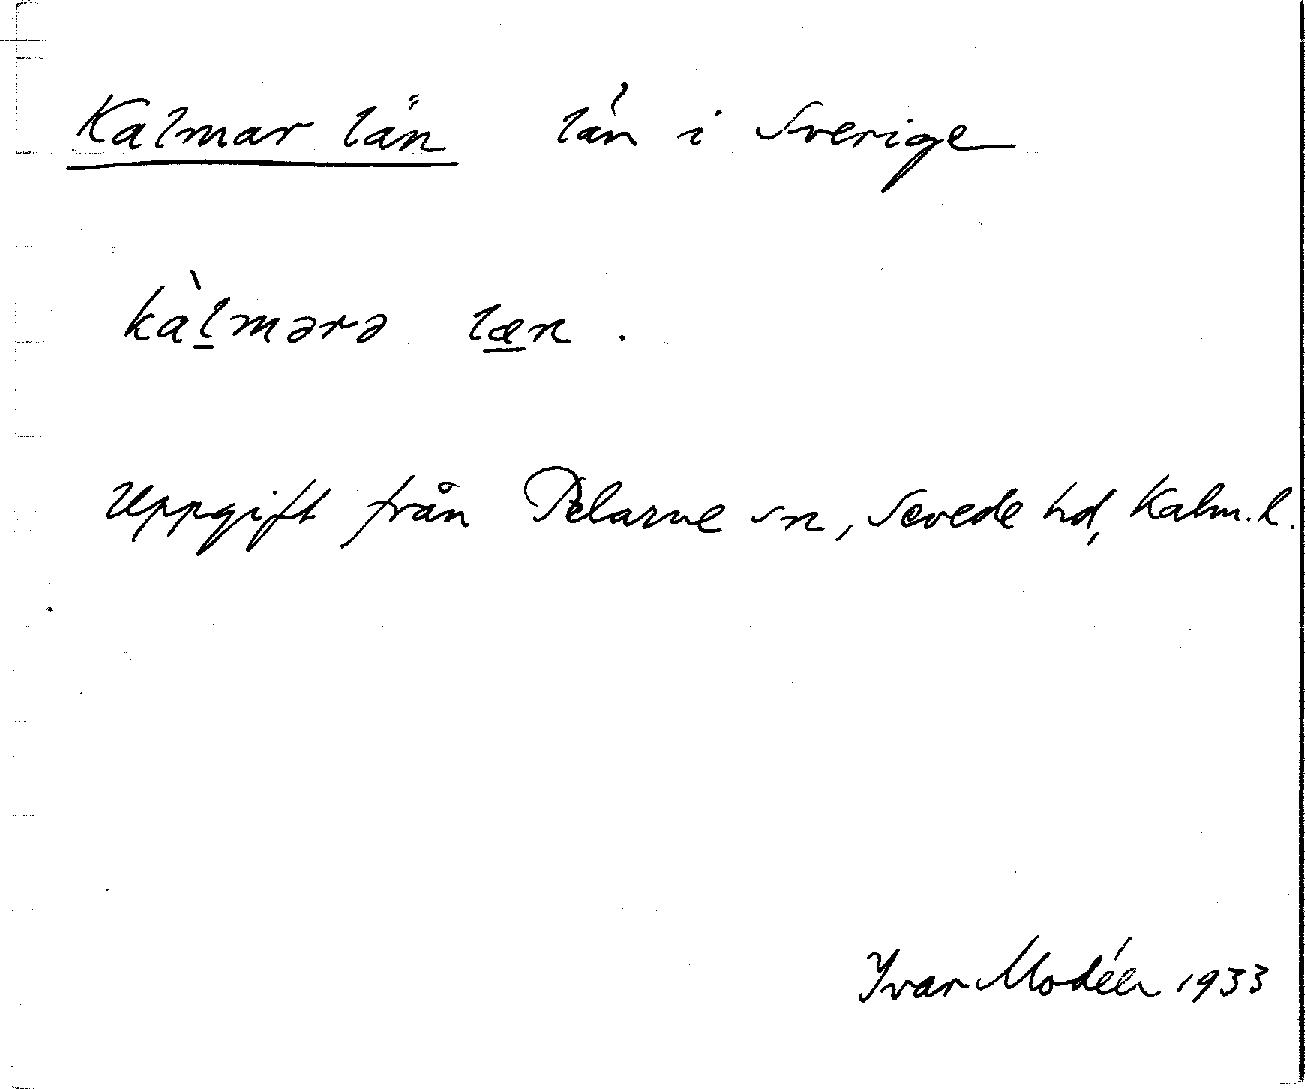 Kalmar län län i Sverige
kàl̠mərə læ̠n.
Uppgift från Pelarne sn, Sevede hd, Kalm. l.
Yvar Modéer 1933